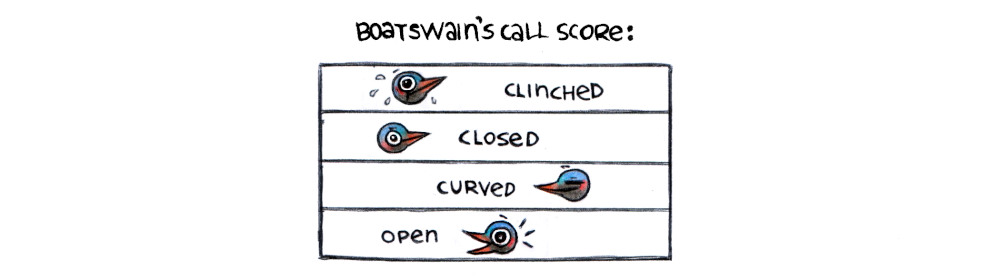 BOATSWAIN'S CALL SCORE:
CLINCHED
CLOSED
CURVED
OPEN